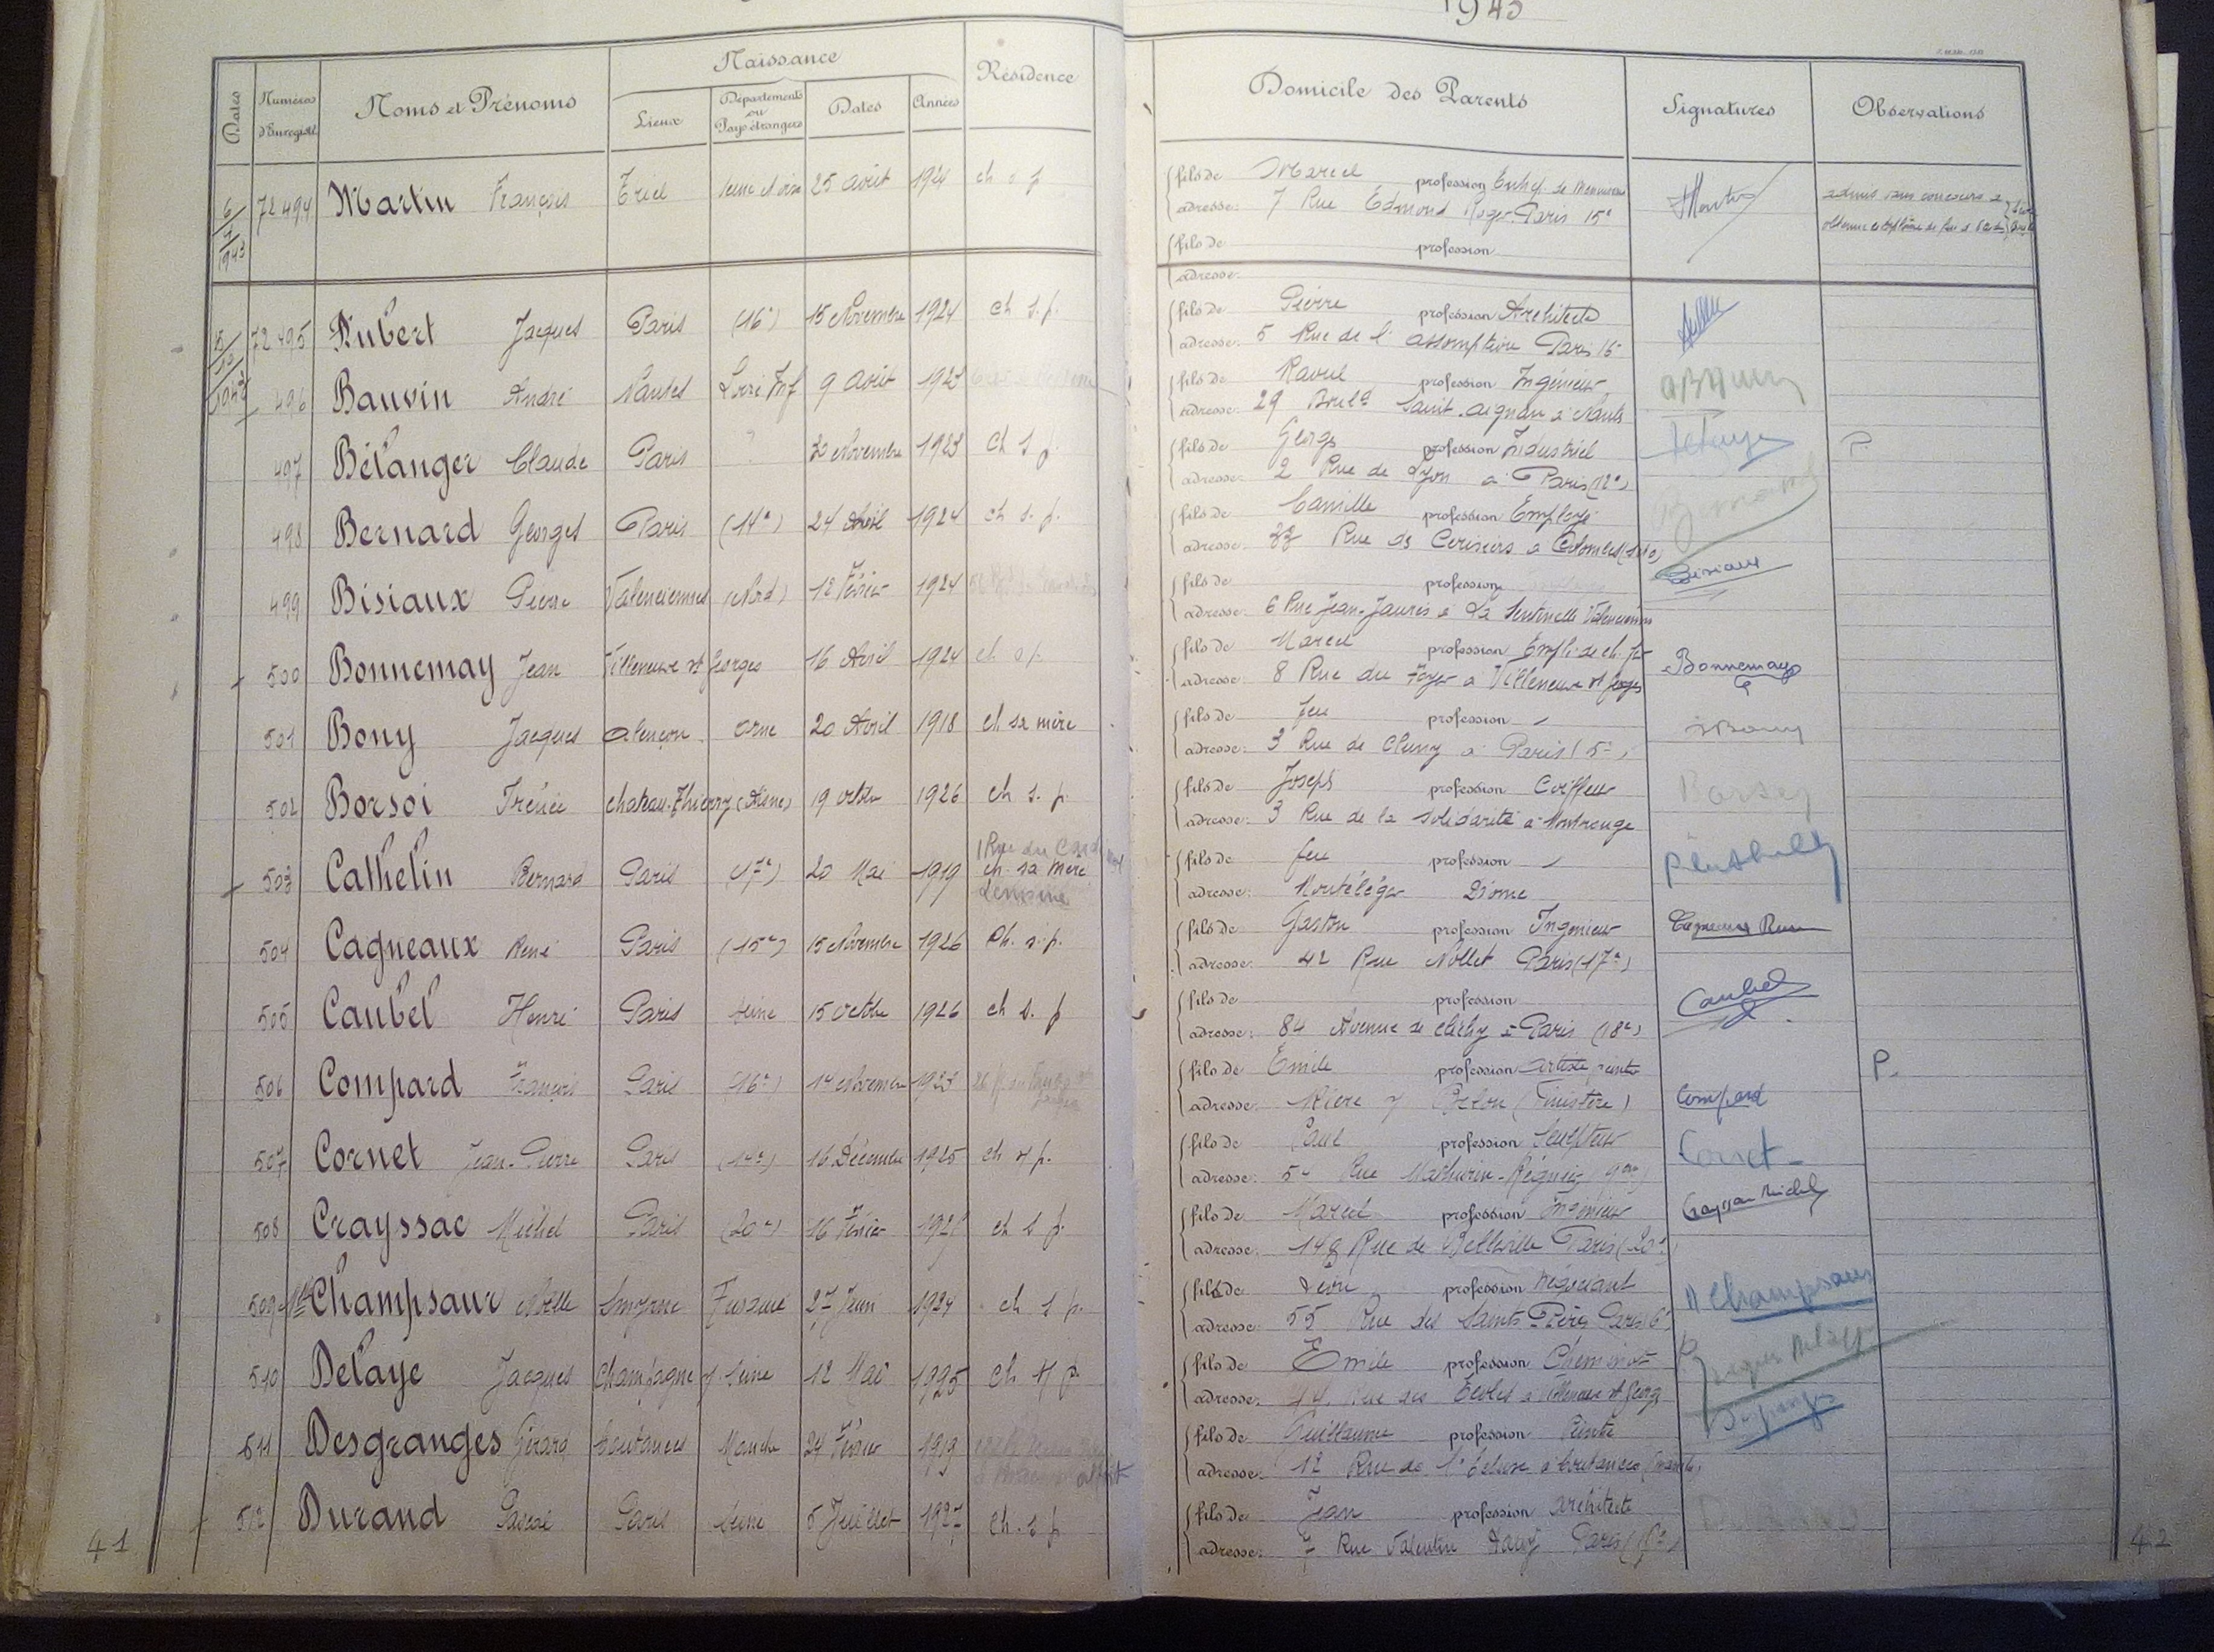 1943
Naissance
Dates
Numéros d'Enregist.
Noms et Prénoms
Lieux
Départements ou Pays étrangers
Dates
Années
Résidence
Domicile des Parents
Signatures
Observations
6/1/1943 72494 Martin François Triel Seine et Oise 25 Août 1924 ch s p
fils de Marcel profession Entrep. de Menuiserie
adresse: 7 Rue Edmond Roger Paris 15e
admis sans concours a
obtenu le diplôme de
fils de profession
adresse:
72495 Aubert Jacques Paris (16e) 15 Novembre 1924 ch s. p.
fils de Pierre profession Architecte
adresse: 5 Rue de l'assomption Paris 16
496 Bauvin André Nantes Loire Inf 9 Août 1923
fils de Raoul profession Ingénieur
adresse: 29 Bould Saint-Aignan à Nantes
497 Bélanger Claude Paris 1923 ch s p.
fils de George profession Industriel
adresse: 2 Rue de Lyon à Paris (12e)
P
498 Bernard Georges Paris (14e) 24 Avril 1924 ch s. p.
fils de Camille profession Employé
adresse: 33 Rue des Cerisiers à Colombes
499 Bisiaux Pierre Valenciennes (Nord) 12 Février 1924
fils de profession
Bisiaux
adresse: 6 Rue Jean-Jaurès à La Sentinelle Valenciennes
500 Bonnemay Jean Villeneuve St Georges 16 Avril 1924 ch s p.
fils de Marcel profession Empl. de ch. fer
adresse: 8 Rue du Foyer à Villeneuve St Georges
Bonnemay
501 Bony Jacques Alençon Orne 20 Avril 1918 ch sa mère
fils de feu profession -
adresse: 3 Rue de Cluny à Paris (5e)
JBony
502 Borsoi Irénée Chateau-Thierry (Aisne) 19 octobre 1926 ch s. p.
fils de Joseph profession Coiffeur
adresse: 3 Rue de la Solidarité à Montrouge
503 Cathelin Bernard Paris (17e) 20 Mai 1919 1 Rue du Card ch. sa mère Lemoine
fils de feu profession -
adresse: Montéléger Drôme
504 Cagneaux René Paris (15e) 15 Novembre 1926 Ch. s. p.
fils de Gaston profession Ingénieur
adresse: 42 Rue Nollet Paris (17e)
Cagneaux René
505 Caubel Henri Paris Seine 15 octobre 1926 ch s. p
fils de profession
adresse: 84 Avenue de Clichy à Paris (18e)
Caubel
506 Compard François Paris (16e) 14 Novembre 1923
fils de Emile profession artiste peintre
adresse: (Finistère)
Compard
P.
507 Cornet Jean-Pierre Paris 16 Décembre 1925 ch s p.
fils de Paul profession Sculpteur
adresse: Rue Mathurin-Régnier
Cornet
508 Crayssac Michel Paris (20e) 16 Février ch s p.
fils de Marcel profession Ingénieur
adresse: 148 Rue de Belleville Paris (20e)
Crayssac Michel
509 Mlle Champsaur Noëlle Smyrne Turquie 27 Juin 1924 ch s p.
fille de Léon profession Négociant
adresse: 55 Rue des Saints-Pères Paris 6
N Champsaur
510 Delaye Jacques Champagne s Seine 12 Mai 1925 ch s p
fils de Emile profession Cheminot
adresse: Rue des Ecoles à Villeneuve St Georges
Jacques Delaye
511 Desgranges Gérard Coutances Manche 24 Février 1919
fils de Guillaume profession Peintre
adresse: 12 Rue de l'Ecluse à Coutances (Manche)
Desgranges
512 Durand Pascal Paris Seine 5 Juillet 1927 ch. s p
fils de Jean profession architecte
adresse: 7 Rue Valentin Haüy Paris (15e)
41
42